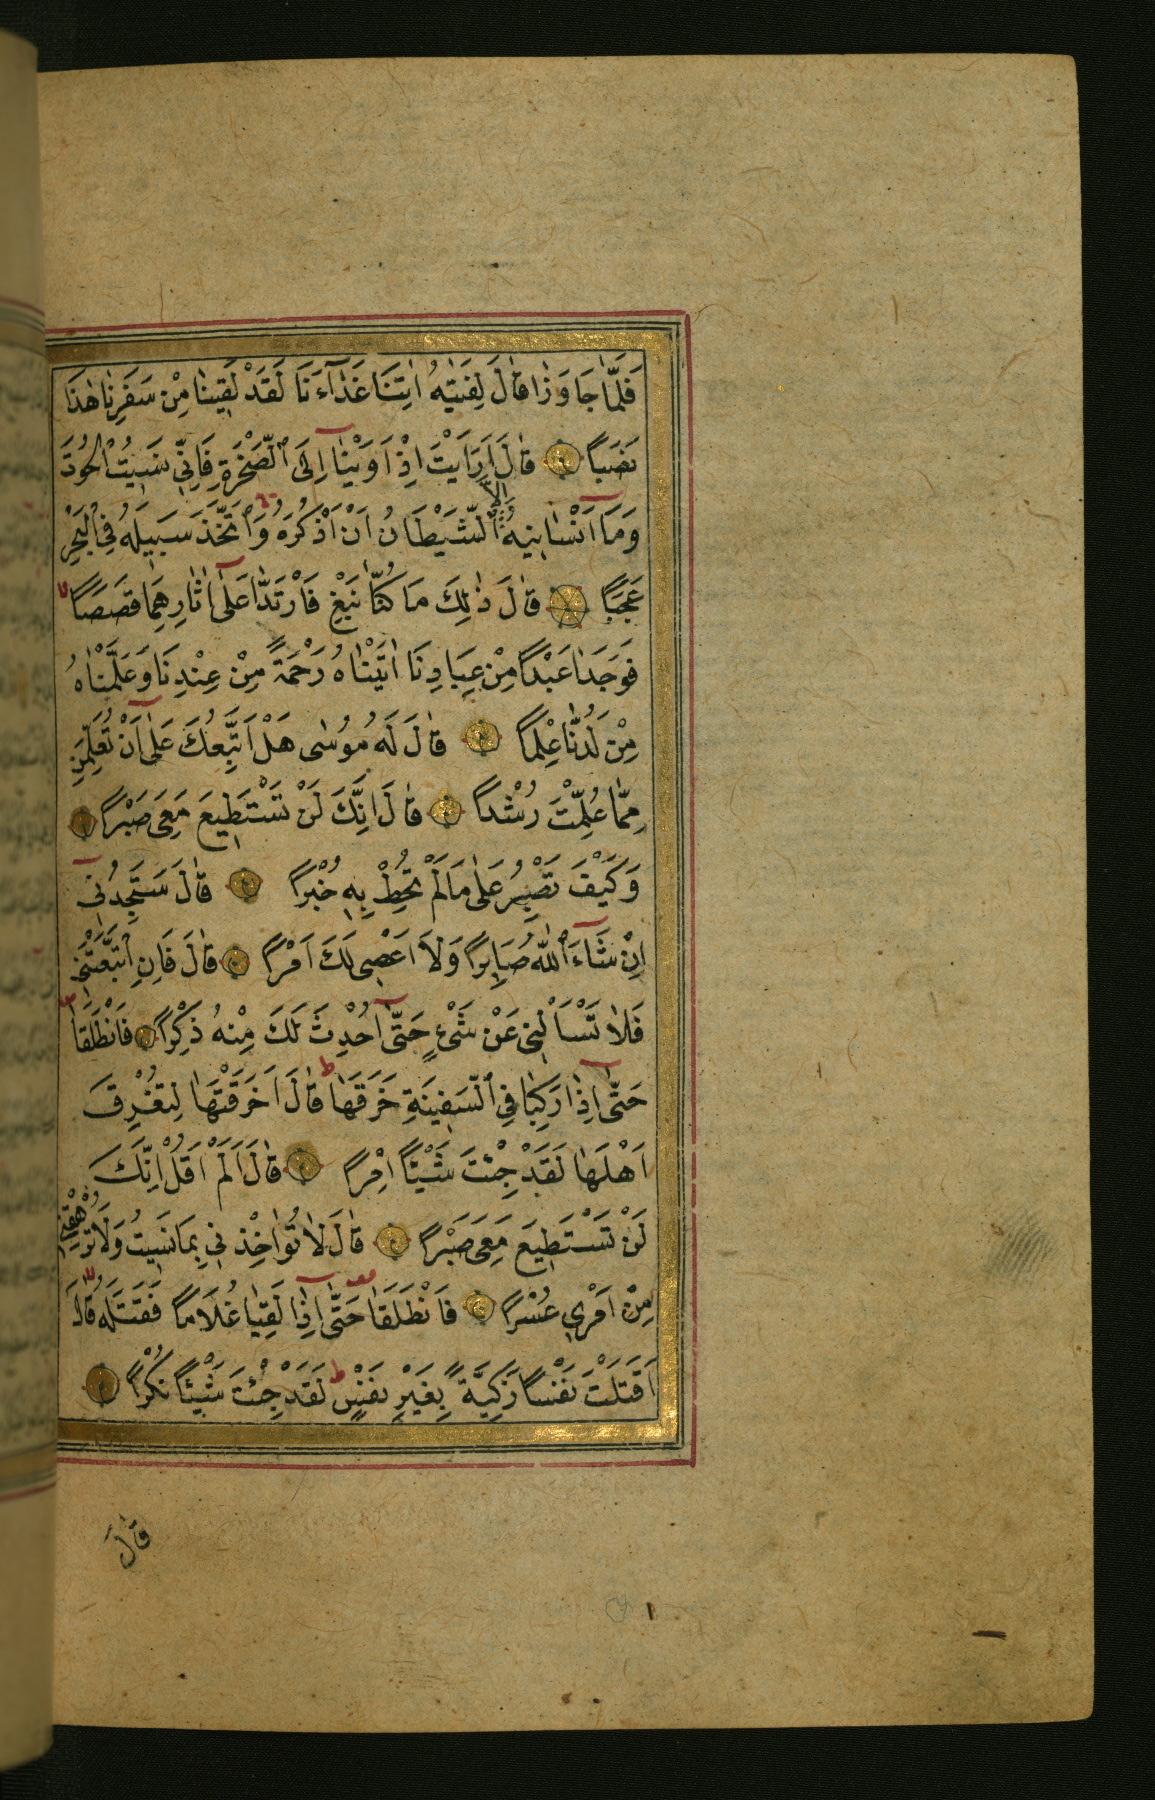 فَلَمَّا جَاوَزَا قَالَ لِفَتٰيهُ اٰتِنَا غَدَآءَنَا لَقَدْ لَقِينَا مِنْ سَفَرِنَا هٰذَا
نَصَبًا قَالَ اَرَاَيْتَ اِذْ اَوَيْنَا اِلَى الصَّخْرَةِ فَاِنِّي نَسِيتُ الْحُوتَ
وَمَا اَنْسَانِيهُ اِلَّا الشَّيْطَانُ اَنْ اَذْكُرَهُ وَاتَّخَذَ سَبِيلَهُ فِي الْبَحْرِ
عَجَبًا قَالَ ذٰلِكَ مَا كُنَّا نَبْغِ فَارْتَدَّا عَلٰى اٰثَارِهِمَا قَصَصًا
فَوَجَدَا عَبْدًا مِنْ عِبَادِنَا اٰتَيْنَاهُ رَحْمَةً مِنْ عِنْدِنَا وَعَلَّمْنَاهُ
مِنْ لَدُنَّا عِلْمًا قَالَ لَهُ مُوسٰى هَلْ اَتَّبِعُكَ عَلٰى اَنْ تُعَلِّمَنِ
مِمَّا عُلِّمْتَ رُشْدًا قَالَ اِنَّكَ لَنْ تَسْتَطِيعَ مَعِيَ صَبْرًا
وَكَيْفَ تَصْبِرُ عَلٰى مَا لَمْ تُحِطْ بِهِ خُبْرًا قَالَ سَتَجِدُنِي
اِنْ شَآءَ اللّٰهُ صَابِرًا وَلَا اَعْصِي لَكَ اَمْرًا قَالَ فَاِنِ اتَّبَعْتَنِي
فَلَا تَسْاَلْنِي عَنْ شَيْءٍ حَتّٰى اُحْدِثَ لَكَ مِنْهُ ذِكْرًا فَانْطَلَقَا
حَتّٰى اِذَا رَكِبَا فِي السَّفِينَةِ خَرَقَهَا قَالَ اَخَرَقْتَهَا لِتُغْرِقَ
اَهْلَهَا لَقَدْ جِئْتَ شَيْئًا اِمْرًا قَالَ اَلَمْ اَقُلْ اِنَّكَ
لَنْ تَسْتَطِيعَ مَعِيَ صَبْرًا قَالَ لَا تُؤَاخِذْنِي بِمَا نَسِيتُ وَلَا تُرْهِقْنِي
مِنْ اَمْرِي عُسْرًا فَانْطَلَقَا حَتّٰى اِذَا لَقِيَا غُلَامًا فَقَتَلَهُ قَالَ
اَقَتَلْتَ نَفْسًا زَكِيَّةً بِغَيْرِ نَفْسٍ لَقَدْ جِئْتَ شَيْئًا نُكْرًا
قَالَ